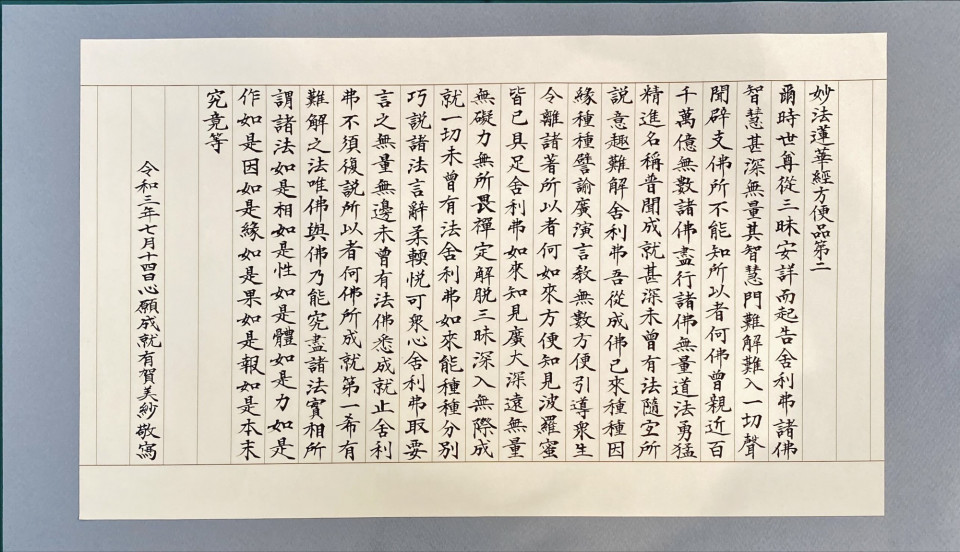 妙法蓮華經方便品第二
爾時世尊從三昧安詳而起告舍利弗諸佛
智慧甚深無量其智慧門難解難入一切聲
聞辟支佛所不能知所以者何佛曾親近百
千萬億無數諸佛盡行諸佛無量道法勇猛
精進名稱普聞成就甚深未曾有法隨宜所
説意趣難解舍利弗吾從成佛已來種種因
緣種種譬諭廣演言教無數方便引導衆生
令離諸著所以者何如來方便知見波羅蜜
皆已具足舍利弗如來知見廣大深遠無量
無礙力無所畏禪定解脱三昧深入無際成
就一切未曾有法舍利弗如來能種種分別
巧説諸法言辭柔輭悦可衆心舍利弗取要
言之無量無邊未曾有法佛悉成就止舍利
弗不須復説所以者何佛所成就第一希有
難解之法唯佛與佛乃能究盡諸法實相所
謂諸法如是相如是性如是體如是力如是
作如是因如是緣如是果如是報如是本末
究竟等
令和三年七月十四日心願成就有賀美紗敬寫